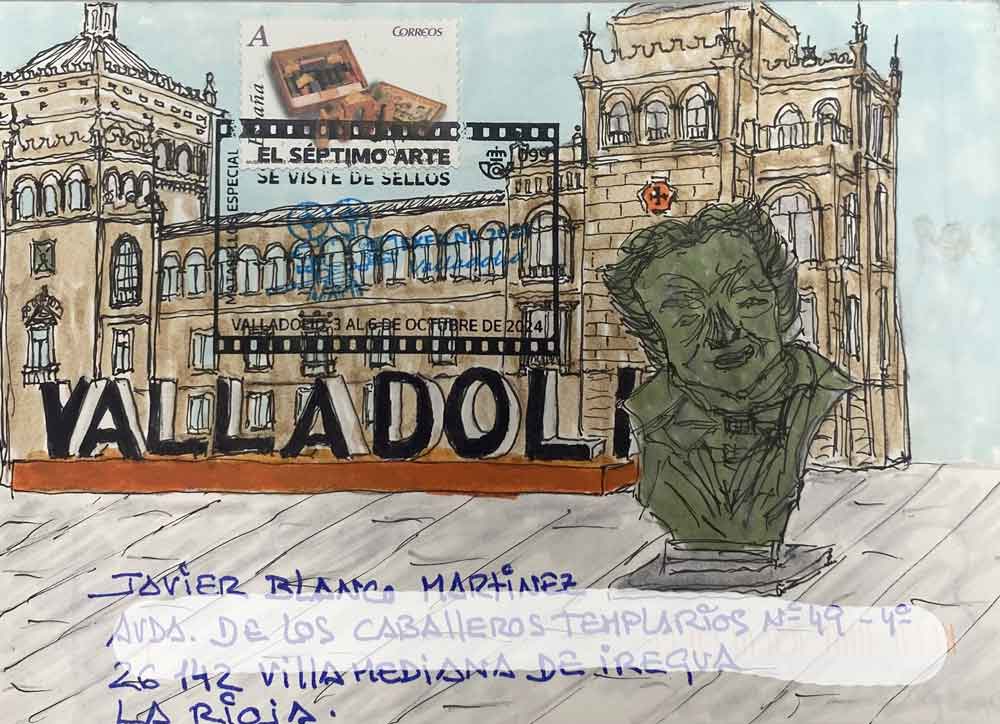 A
CORREOS
España
EL SÉPTIMO ARTE
SE VISTE DE SELLOS
099
MATASELLOS ESPECIAL
Valladolid
VALLADOLID, 3 AL 6 DE OCTUBRE DE 2024
VALLADOLI
JAVIER BLANCO MARTINEZ
AVDA. DE LOS CABALLEROS TEMPLARIOS Nº 49 - 4º
26142 VILLAMEDIANA DE IREGUA
LA RIOJA.